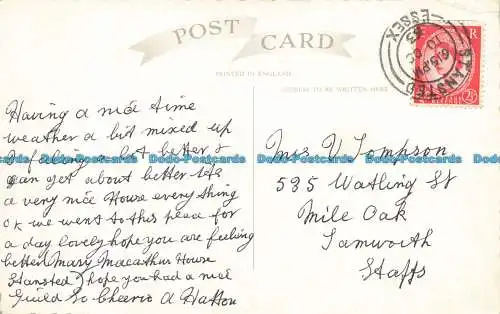 POST CARD
PRINTED IN ENGLAND
ADDRESS TO BE WRITTEN HERE
STANSTED
ESSEX
6 15 PM
Having a nice time
weather a bit mixed up
feeling a lot better &
can get about better its
a very nice House every thing
ok we went to this place for
a day lovely hope you are feeling
better Mary Macarthur House
Stansted) hope you had a nice
Guild So Cheerio A Hatton
Mrs V Tompson
595 Watling St
Mile Oak
Tamworth
Staffs
Dodo-Postcards Dodo-Postcards Dodo-Postcards Dodo-Postcards